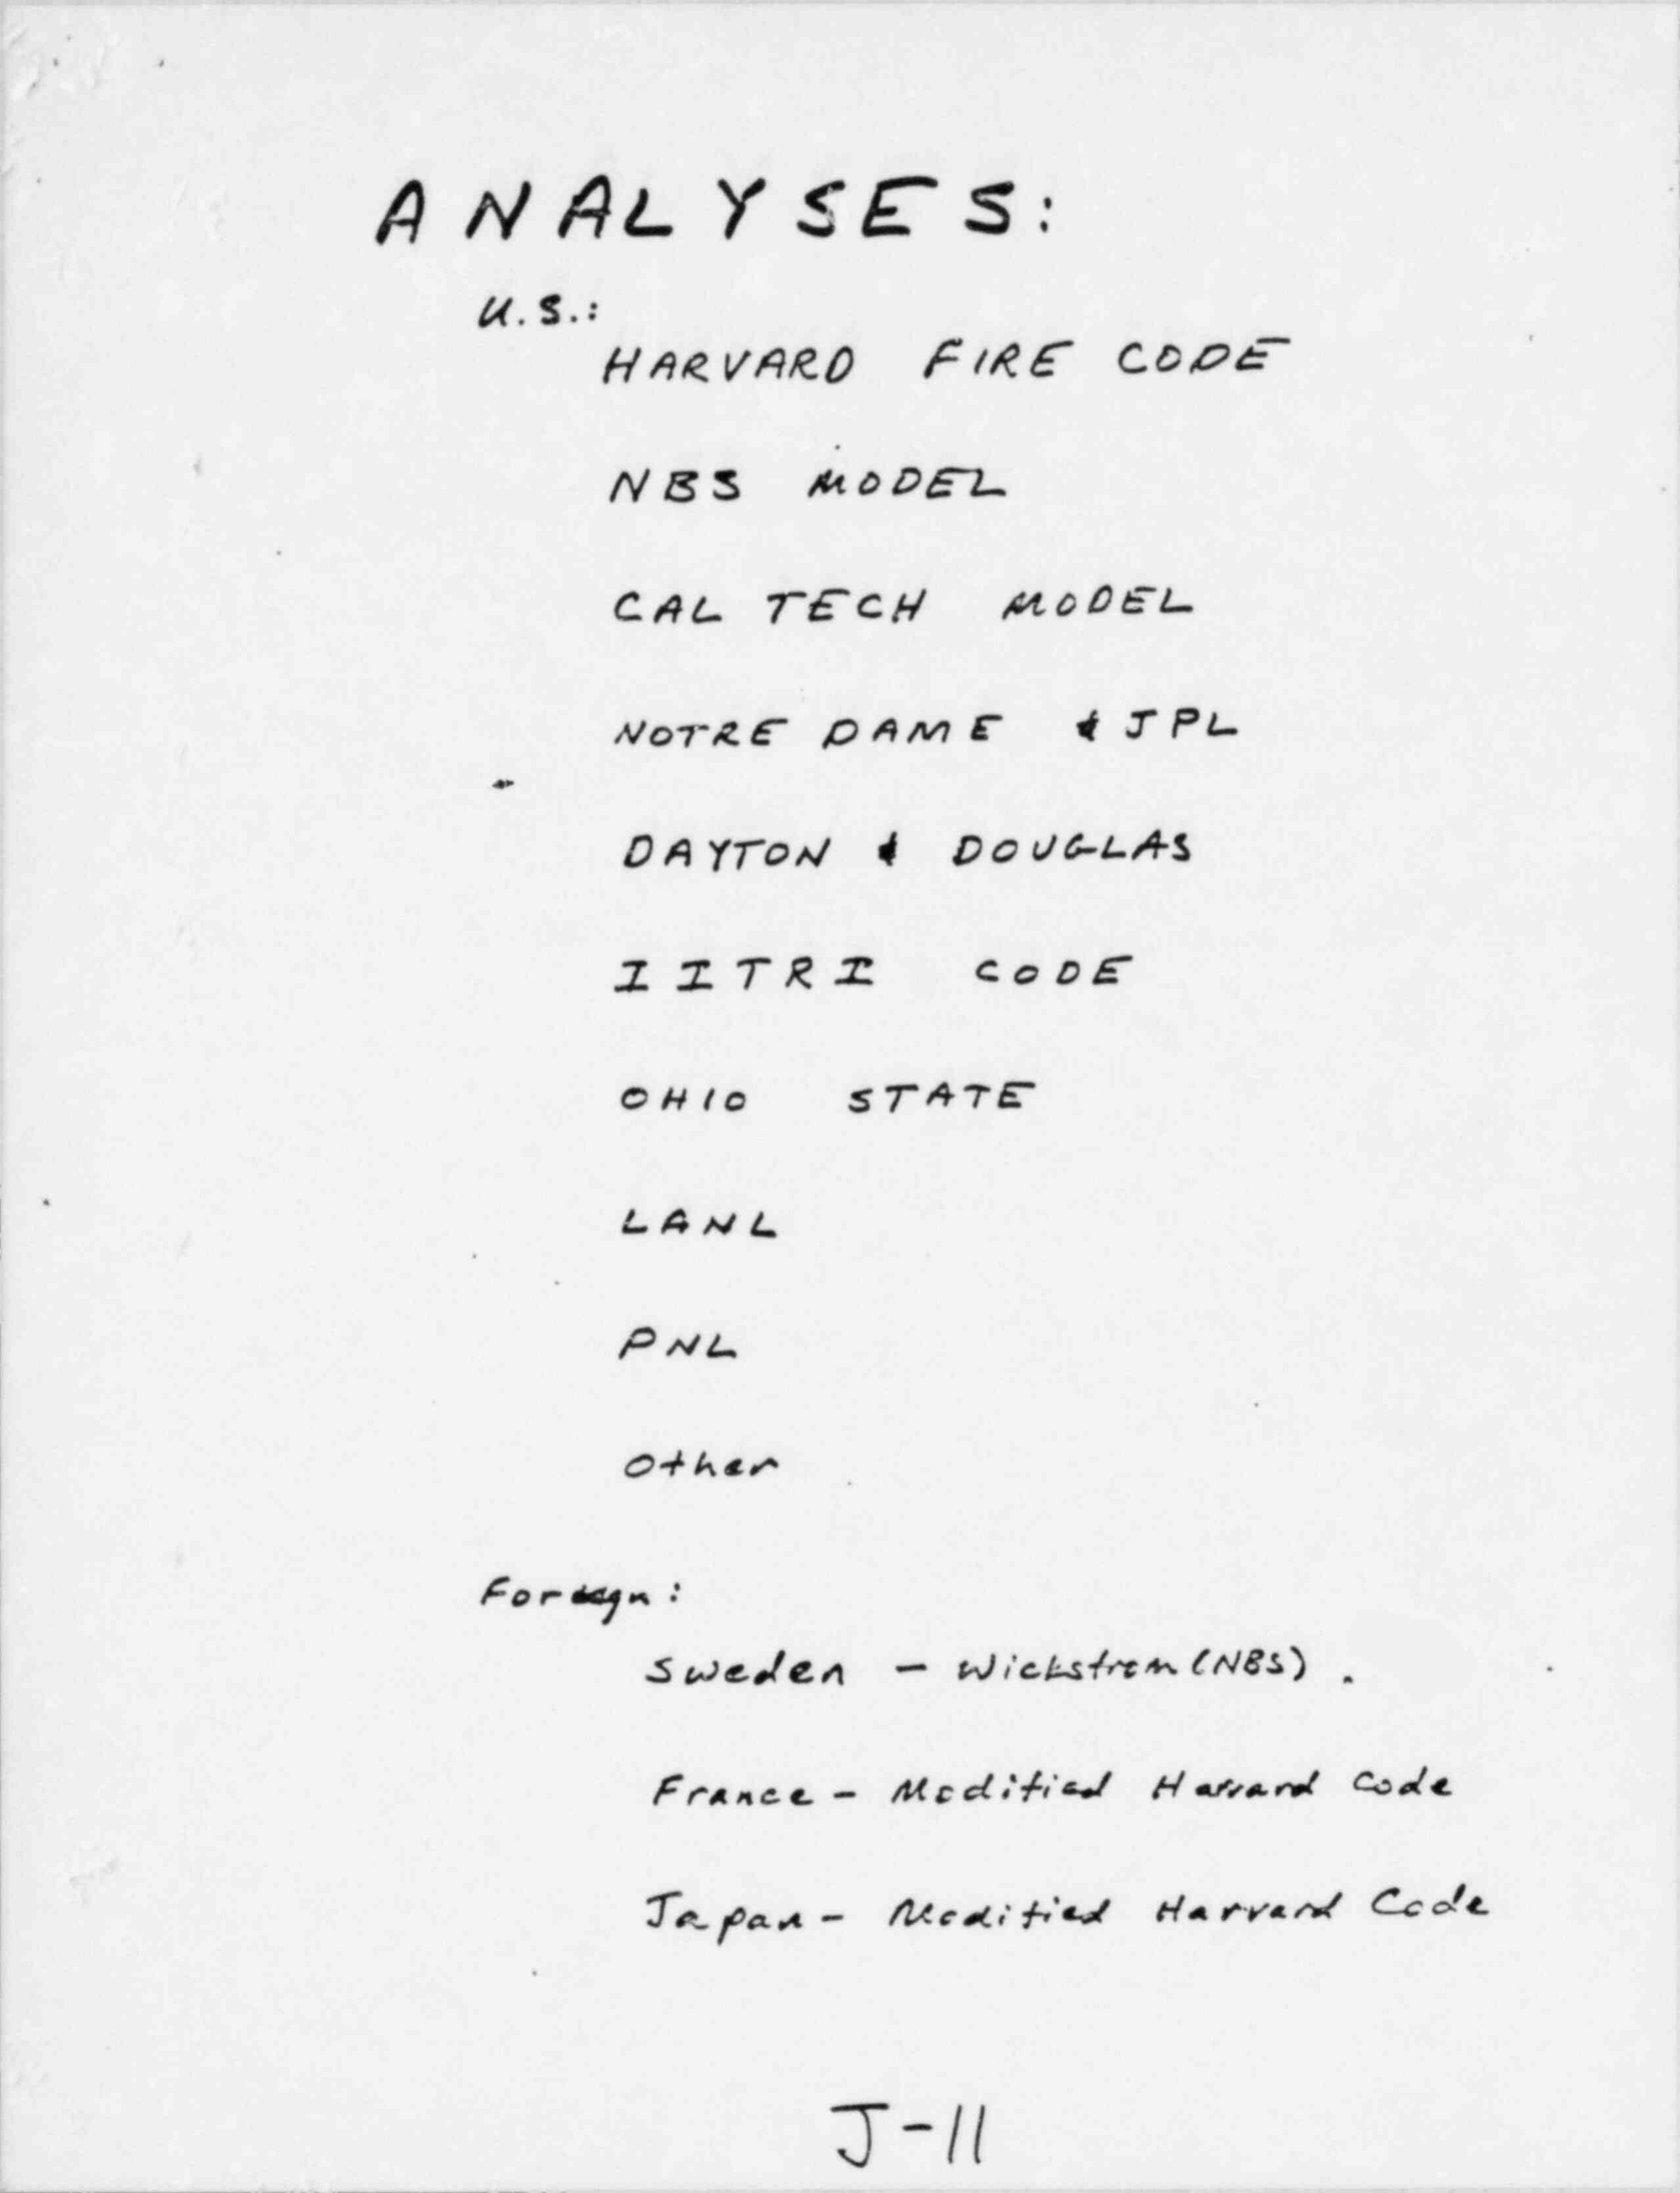 ANALYSES:
U.S.:
HARVARD FIRE CODE
NBS MODEL
CAL TECH MODEL
NOTRE DAME & JPL
DAYTON & DOUGLAS
IITRI CODE
OHIO STATE
LANL
PNL
Other
Foreign:
Sweden - Wickstrom (NBS).
France - Modified Harvard Code
Japan - Modified Harvard Code
J-11